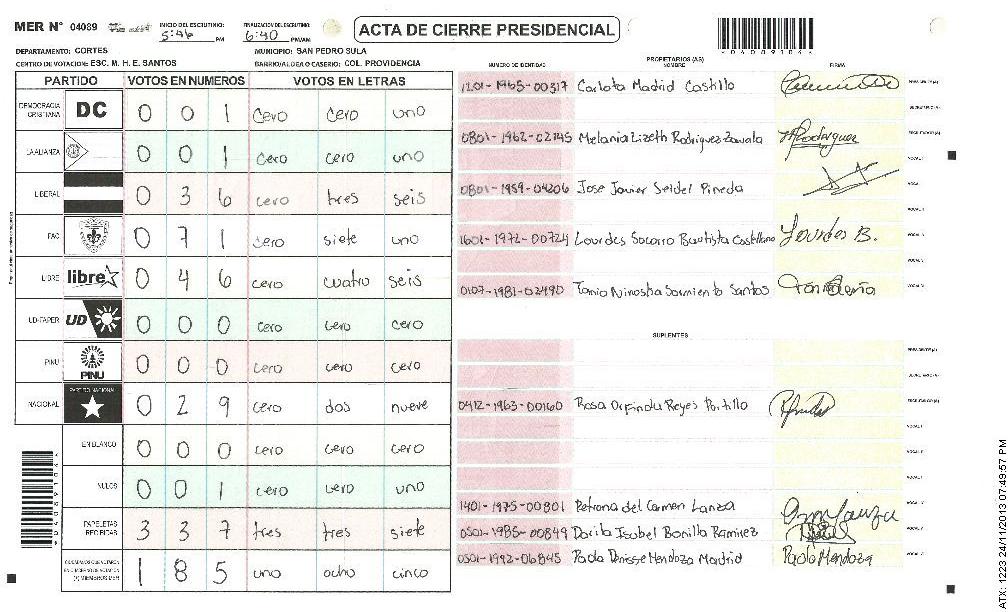 MER N° 04089
INICIO DEL ESCRUTINIO: 5:46 PM
FINALIZACIÓN DEL ESCRUTINIO: 6:40 PM/AM
ACTA DE CIERRE PRESIDENCIAL
DEPARTAMENTO: CORTES
MUNICIPIO: SAN PEDRO SULA
CENTRO DE VOTACION: ESC. M. H. E. SANTOS
BARRIO/ALDEA O CASERIO: COL. PROVIDENCIA
PARTIDO VOTOS EN NUMEROS VOTOS EN LETRAS
DEMOCRACIA CRISTIANA DC 0 0 1 cero cero uno
LA ALIANZA 0 0 1 cero cero uno
LIBERAL 0 3 6 cero tres seis
PAC 0 7 1 cero siete uno
LIBRE libre 0 4 6 cero cuatro seis
UD-FAPER UD 0 0 0 cero cero cero
PINU PINU 0 0 0 cero cero cero
NACIONAL PARTIDO NACIONAL 0 2 9 cero dos nueve
EN BLANCO 0 0 0 cero cero cero
NULOS 0 0 1 cero cero uno
PAPELETAS RECIBIDAS 3 3 7 tres tres siete
1 8 5 uno ocho cinco
NUMERO DE IDENTIDAD PROPIETARIOS (AS) NOMBRE FIRMA
1201-1965-00317 Carlota Madrid Castillo PRESIDENTE (A)
SECRETARIO (A)
0801-1962-02745 Melania Lizeth Rodriguez Zavala Rodriguez ESCRUTADOR (A)
VOCAL I
0801-1959-04206 Jose Javier Seidel Pineda
1601-1972-00724 Lourdes Socorro Bautista Castellano Lourdes B.
0107-1981-02490 Tania Ninoska Sarmiento Santos
SUPLENTES
PRESIDENTE (A)
SECRETARIO (A)
0412-1963-00160 Rosa Orfinda Reyes Portillo ESCRUTADOR (A)
VOCAL I
1401-1975-00801 Petrona del Carmen Lanza
0501-1985-00849 Dorita Isabel Bonilla Ramirez
0501-1992-06845 Paola Denisse Mendoza Madrid Paola Mendoza
ATX: 1223 24/11/2013 07:49:57 PM